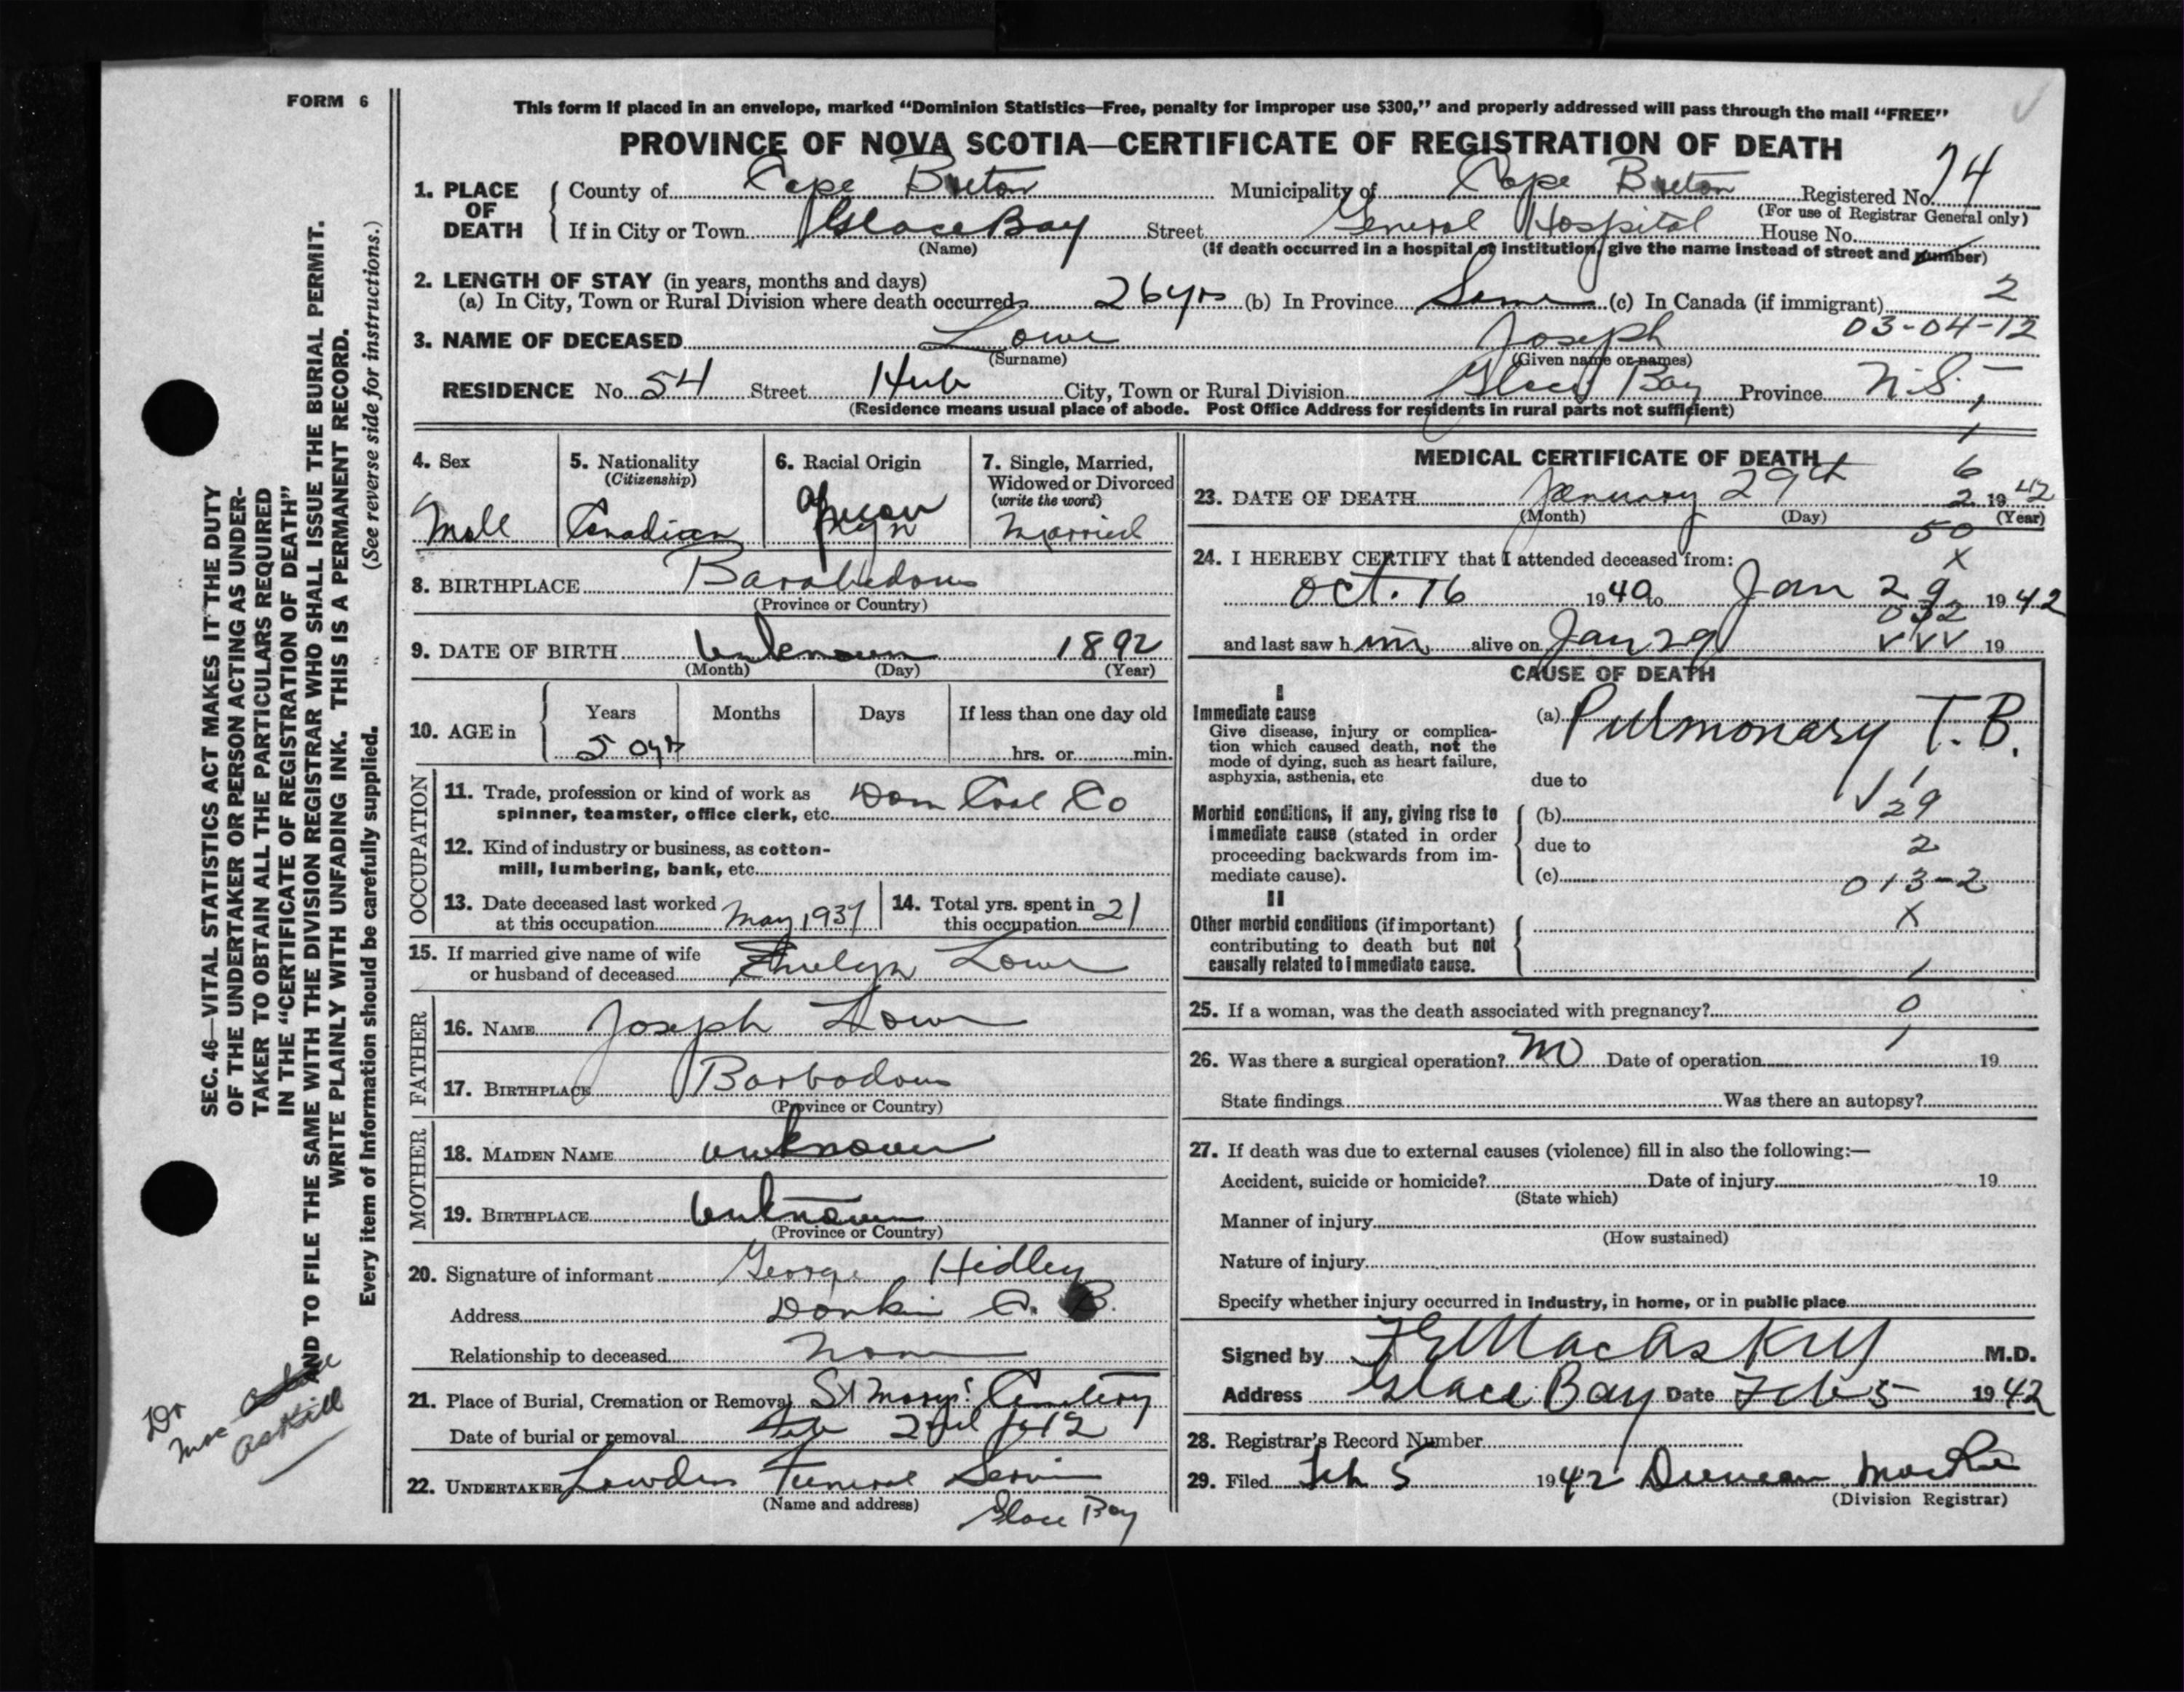 FORM 6
This form if placed in an envelope, marked “Dominion Statistics—Free, penalty for improper use $300,” and properly addressed will pass through the mail “FREE”
PROVINCE OF NOVA SCOTIA—CERTIFICATE OF REGISTRATION OF DEATH
1. PLACE OF DEATH County of Cape Breton Municipality of Cape Breton Registered No. 74
(For use of Registrar General only)
If in City or Town Glace Bay Street General Hospital House No.
(Name) (If death occurred in a hospital or institution, give the name instead of street and number)
2. LENGTH OF STAY (in years, months and days)
(a) In City, Town or Rural Division where death occurred 26 yrs (b) In Province Same (c) In Canada (if immigrant) 2
03-04-12
3. NAME OF DECEASED Lowe Joseph
(Surname) (Given name or names)
RESIDENCE No. 54 Street Hub City, Town or Rural Division Glace Bay Province N.S.
(Residence means usual place of abode. Post Office Address for residents in rural parts not sufficient)
4. Sex
Male
5. Nationality
(Citizenship)
Canadian
6. Racial Origin
African
7. Single, Married,
Widowed or Divorced
(write the word)
Married
8. BIRTHPLACE Barabedous
(Province or Country)
9. DATE OF BIRTH Unknown 1892
(Month) (Day) (Year)
10. AGE in Years Months Days If less than one day old
50 yrs hrs. or min.
OCCUPATION
11. Trade, profession or kind of work as Dom Coal Co
spinner, teamster, office clerk, etc.
12. Kind of industry or business, as cotton-
mill, lumbering, bank, etc.
13. Date deceased last worked
at this occupation May 1937
14. Total yrs. spent in
this occupation 21
15. If married give name of wife
or husband of deceased Evelyn Lowe
FATHER
16. NAME Joseph Lowe
17. BIRTHPLACE Barbadous
(Province or Country)
MOTHER
18. MAIDEN NAME unknown
19. BIRTHPLACE Unknown
(Province or Country)
20. Signature of informant George Hidley
Address Donkin C. B.
Relationship to deceased None
21. Place of Burial, Cremation or Removal St Marys' Cemetery
Date of burial or removal Feb 2nd 1942
22. UNDERTAKER Funeral Service
(Name and address) Glace Bay
MEDICAL CERTIFICATE OF DEATH
6
23. DATE OF DEATH January 29th 2 1942
(Month) (Day) (Year)
50
24. I HEREBY CERTIFY that I attended deceased from:
X
Oct. 16 1940 to Jan 29 1942
032
and last saw him alive on Jan 29 19
CAUSE OF DEATH
I
Immediate cause
Give disease, injury or complica-
tion which caused death, not the
mode of dying, such as heart failure,
asphyxia, asthenia, etc
(a) Pulmonary T.B.
due to
Morbid conditions, if any, giving rise to
immediate cause (stated in order
proceeding backwards from im-
mediate cause).
(b) 29
due to 2
(c) 013-2
II
X
Other morbid conditions (if important)
contributing to death but not
causally related to immediate cause.
1
25. If a woman, was the death associated with pregnancy? 0
26. Was there a surgical operation? no Date of operation 19
State findings Was there an autopsy?
27. If death was due to external causes (violence) fill in also the following:—
Accident, suicide or homicide? Date of injury 19
(State which)
Manner of injury
(How sustained)
Nature of injury
Specify whether injury occurred in industry, in home, or in public place
Signed by M.D.
Address Glace Bay Date Feb 5 1942
28. Registrar's Record Number
29. Filed Feb 5 1942 Duncan
(Division Registrar)
SEC. 46—VITAL STATISTICS ACT MAKES IT THE DUTY
OF THE UNDERTAKER OR PERSON ACTING AS UNDER-
TAKER TO OBTAIN ALL THE PARTICULARS REQUIRED
IN THE “CERTIFICATE OF REGISTRATION OF DEATH”
AND TO FILE THE SAME WITH THE DIVISION REGISTRAR WHO SHALL ISSUE THE BURIAL PERMIT.
WRITE PLAINLY WITH UNFADING INK. THIS IS A PERMANENT RECORD.
Every item of information should be carefully supplied. (See reverse side for instructions.)
Dr
Mac
Askill